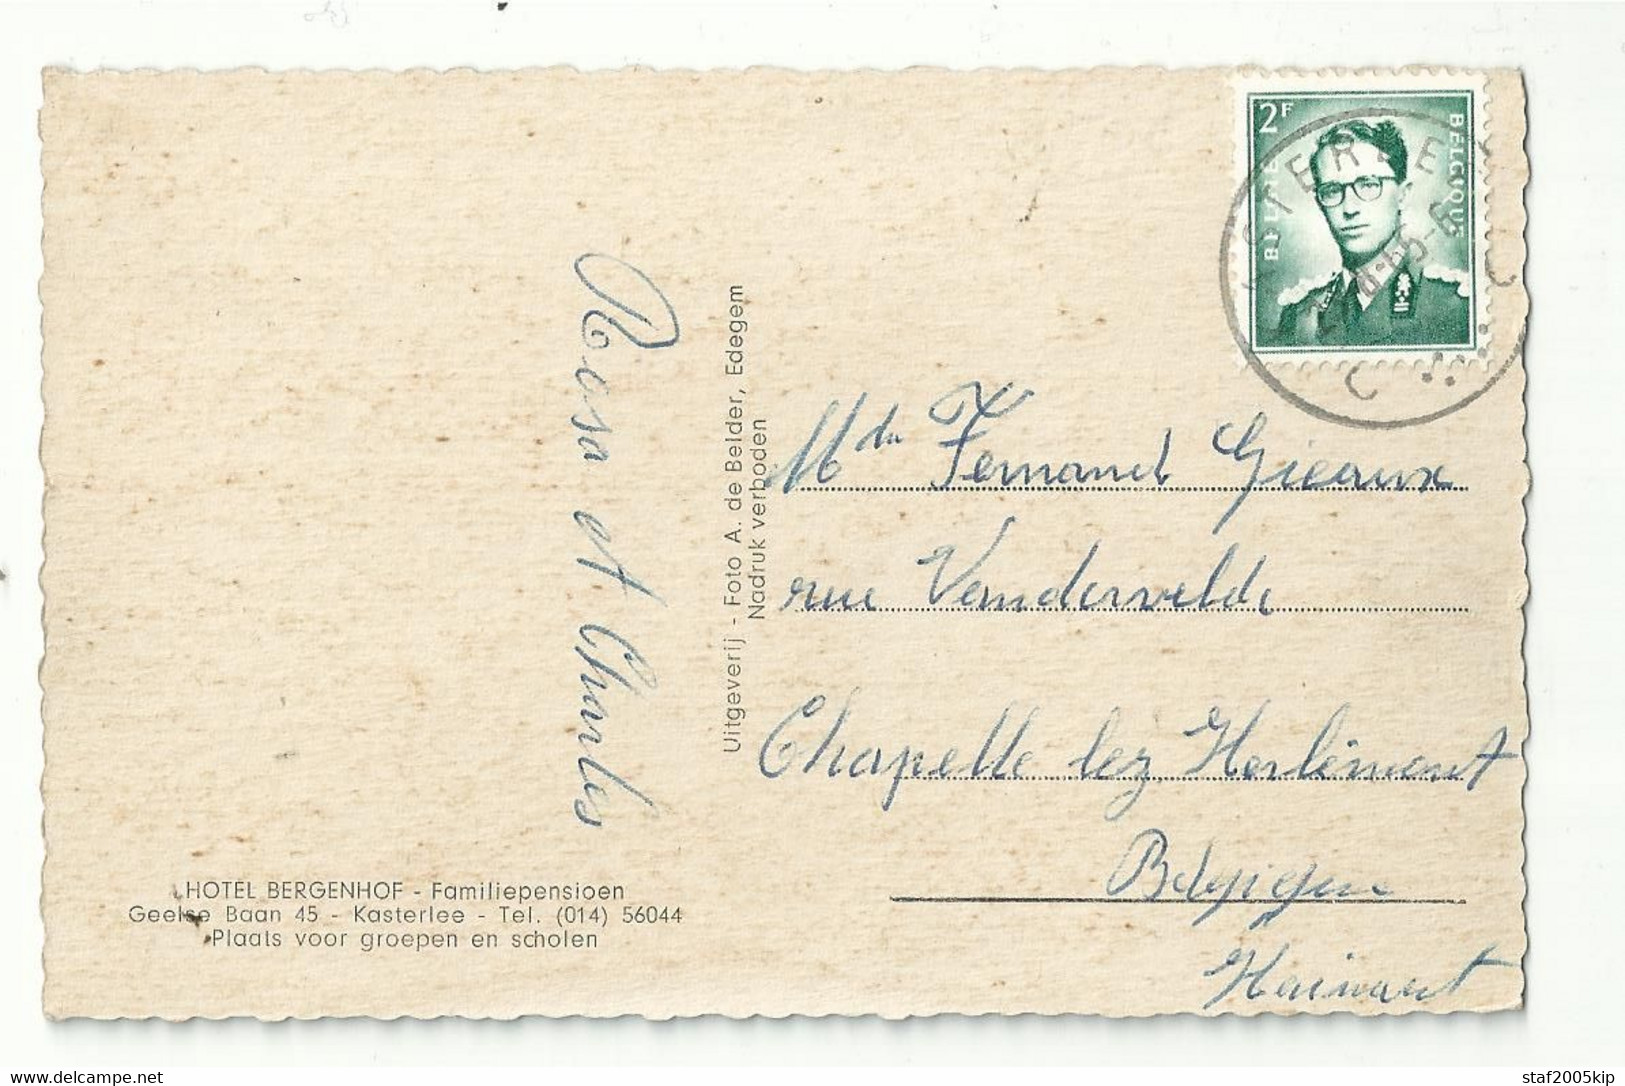 2F
BELGIQUE
BELGIË
STERLEE
C
Rosa et Charles
Uitgeverij - Foto A. de Belder, Edegem
Nadruk verboden
Fernand Gieaux
rue Vandervelde
Chapelle lez Herlemont
Hainaut
HOTEL BERGENHOF - Familiepensioen
Geelse Baan 45 - Kasterlee - Tel. (014) 56044
Plaats voor groepen en scholen
delcampe.net
staf2005kip